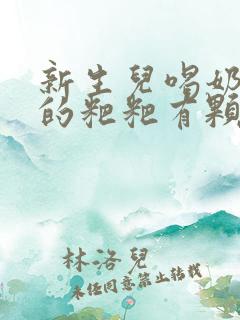 新生兒喝奶
的粑粑有顆
林洛兒
未经同意禁止转载